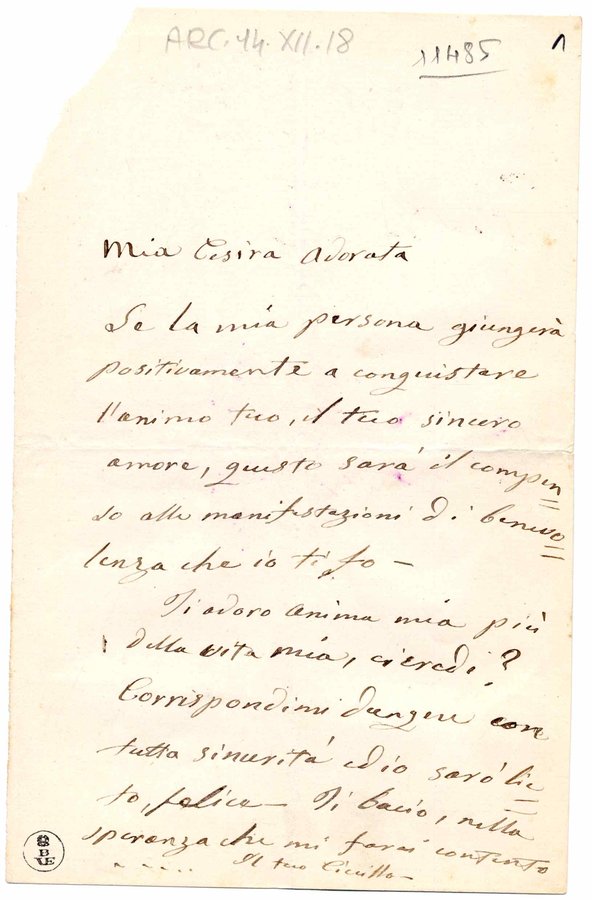 ARC. 44. XII. 18
11485
1
Mia Cesira adorata
Se la mia persona giungerà
positivamente a conquistare
l'animo tuo, il tuo sincero
amore, questo sarà il compen=
so alle manifestazioni di benevo=
lenza che io ti fo —
Ti adoro anima mia più
della vita mia, ci credi?
Corrispondimi dunque con
tutta sincerità ed io sarò lie=
to, felice — Ti bacio, nella
speranza che mi farai contento
Il tuo
BVE